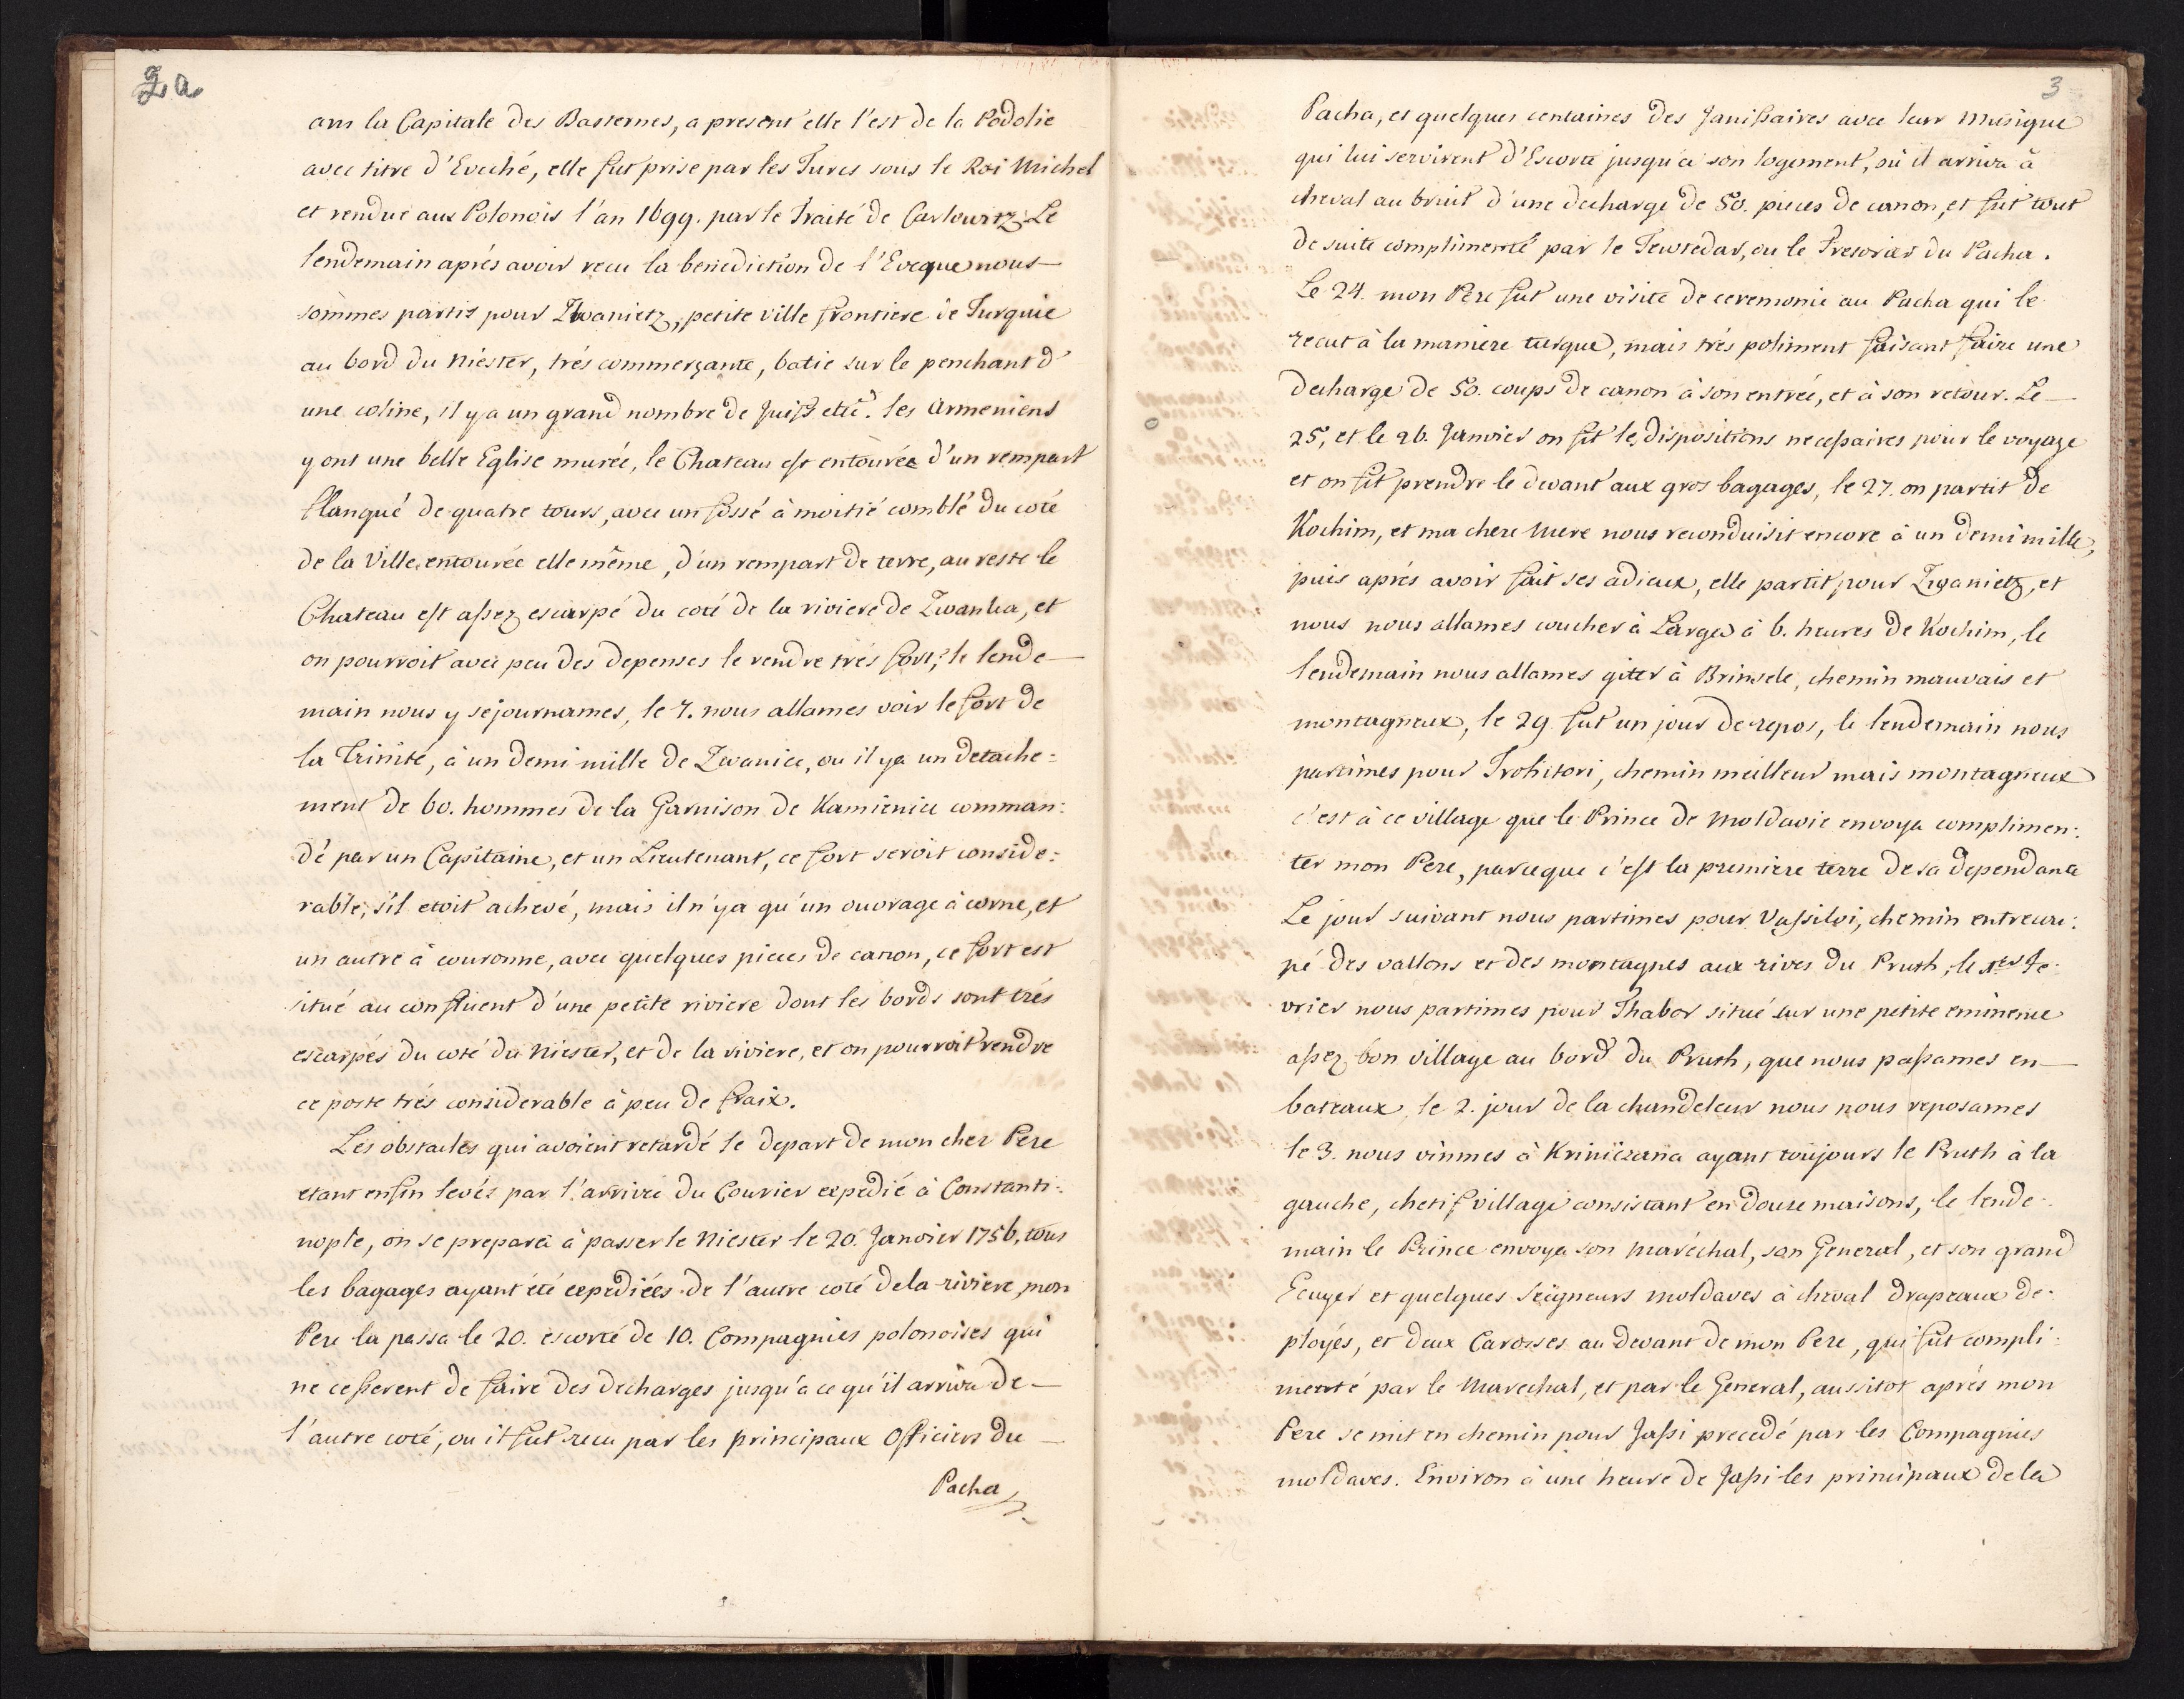 2a
am la Capitale des Basternes, a present elle l'est de la Podolie
avec titre d'Eveché, elle fut prise par les Turcs sous le Roi Michel
et rendue aux Polonois l'an 1699. par le Traité de Carlowitz. Le
lendemain aprés avoir recu la benediction de l'Eveque nous
sommes partis pour Zwanietz, petite ville frontiere de Turquie
au bord du Niester, trés commerçante, batie sur le penchant d'
une coline, il y a un grand nombre de Juifs etc. les Armeniens
y ont une belle Eglise murée, le Chateau est entourée d'un rempart
flanqué de quatre tours, avec un fossé à moitié comblé du coté
de la Ville, entourée elle même, d'un rempart de terre, au reste le
Chateau est assez escarpé du coté de la riviere de Zwanka, et
on pourroit avec peu des depenses le rendre trés fort; le lende
main nous y sejournames, le 7. nous allames voir le fort de
la Trinité, à un demi mille de Zwanice, ou il ya un detache:
ment de 60. hommes de la Garnison de Kamienice comman:
dé par un Capitaine, et un Lieutenant, ce fort seroit conside:
rable, s'il etoit achevé, mais il n'ya qu'un ouvrage à corne, et
un autre à couronne, avec quelques pieces de canon, ce fort est
situé au confluent d'une petite riviere dont les bords sont trés
escarpés du coté du Niester, et de la riviere, et on pourroit rendre
ce poste trés considerable à peu de fraix.
Les obstacles qui avoient retardé le depart de mon cher Pere
etant enfin levés par l'arrivée du Courier expedié à Constanti:
nople, on se prepara à passer le Niester le 20. Janvier 1756, tous
les bagages ayant été expediées de l'autre coté dela riviere, mon
Pere la passa le 20. escorté de 10. Compagnies polonoises qui
ne cesserent de faire des decharges jusqu'a ce qu'il arriva de
l'autre coté, ou il fut recu par les principaux Officiers du
Pacha
3
Pacha, et quelques centaines des Janissaires avec leur Musique
qui lui servirent d'Escorte jusqu'a son logement, où il arriva à
cheval au bruit d'une decharge de 50. pieces de canon, et fut tout
de suite complimenté par le Tewtedar, ou le Tresorier du Pacha.
Le 24. mon Pere fut une visite de ceremonie au Pacha qui le
recut à la maniere turque, mais trés poliment faisant faire une
decharge de 50. coups de canon à son entrée, et à son retour. Le
25, et le 26. Janvier on fit les dispositions necessaires pour le voyage
et on fit prendre le devant aux gros bagages, le 27. on partit de
Kochim, et ma chere Mere nous reconduisit encore à un demi mille,
puis aprés avoir fait ses adieux, elle partit pour Zwanietz, et
nous nous allames coucher à Larga à 6. heures de Kochim, le
lendemain nous allames giter à Brinsele, chemin mauvais et
montagneux, le 29. fut un jour de repos, le lendemain nous
partimes pour Trohitori, chemin meilleur mais montagneux
c'est à ce village que le Prince de Moldavie envoya complimen:
ter mon Pere, parceque c'est la premiere terre de sa dependance
Le jour suivant nous partimes pour Vassiloi, chemin entrecou:
pé des vallons et des montagnes aux rives du Pruth, le 1er Fe:
vrier nous partimes pour Thabor situé sur une petite eminence
assez bon village au bord du Pruth, que nous passames en
bateaux, le 2. jour de la chandeleur nous nous reposames
le 3. nous vinmes à Kriniczana ayant toujours le Pruth à la
gauche, chetif village consistant en douze maisons, le lende:
main le Prince envoya son maréchal, son General, et son grand
Ecuyer et quelques Seigneurs moldaves à cheval drapeaux de:
ployés, et deux Carosses au devant de mon Pere, qui fut compli:
menté par le Marechal, et par le General, aussitot aprés mon
Pere se mit en chemin pour Jassi precedé par les Compagnies
moldaves. Environ à une heure de Jassi les principaux dela